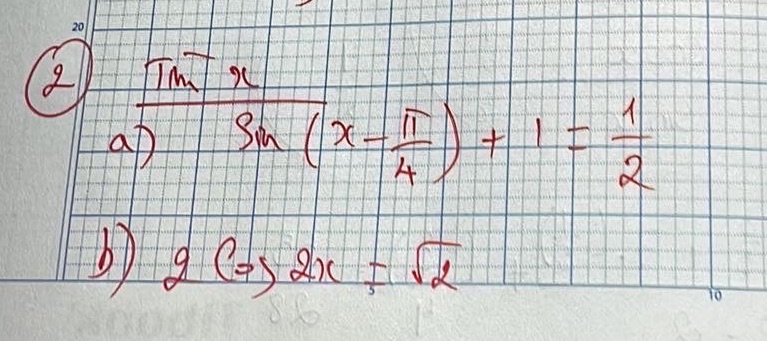 20
② Tm x
a) Sin (x - π/4) + 1 = 1/2
b) 2 Cos 2x = √2
5
10